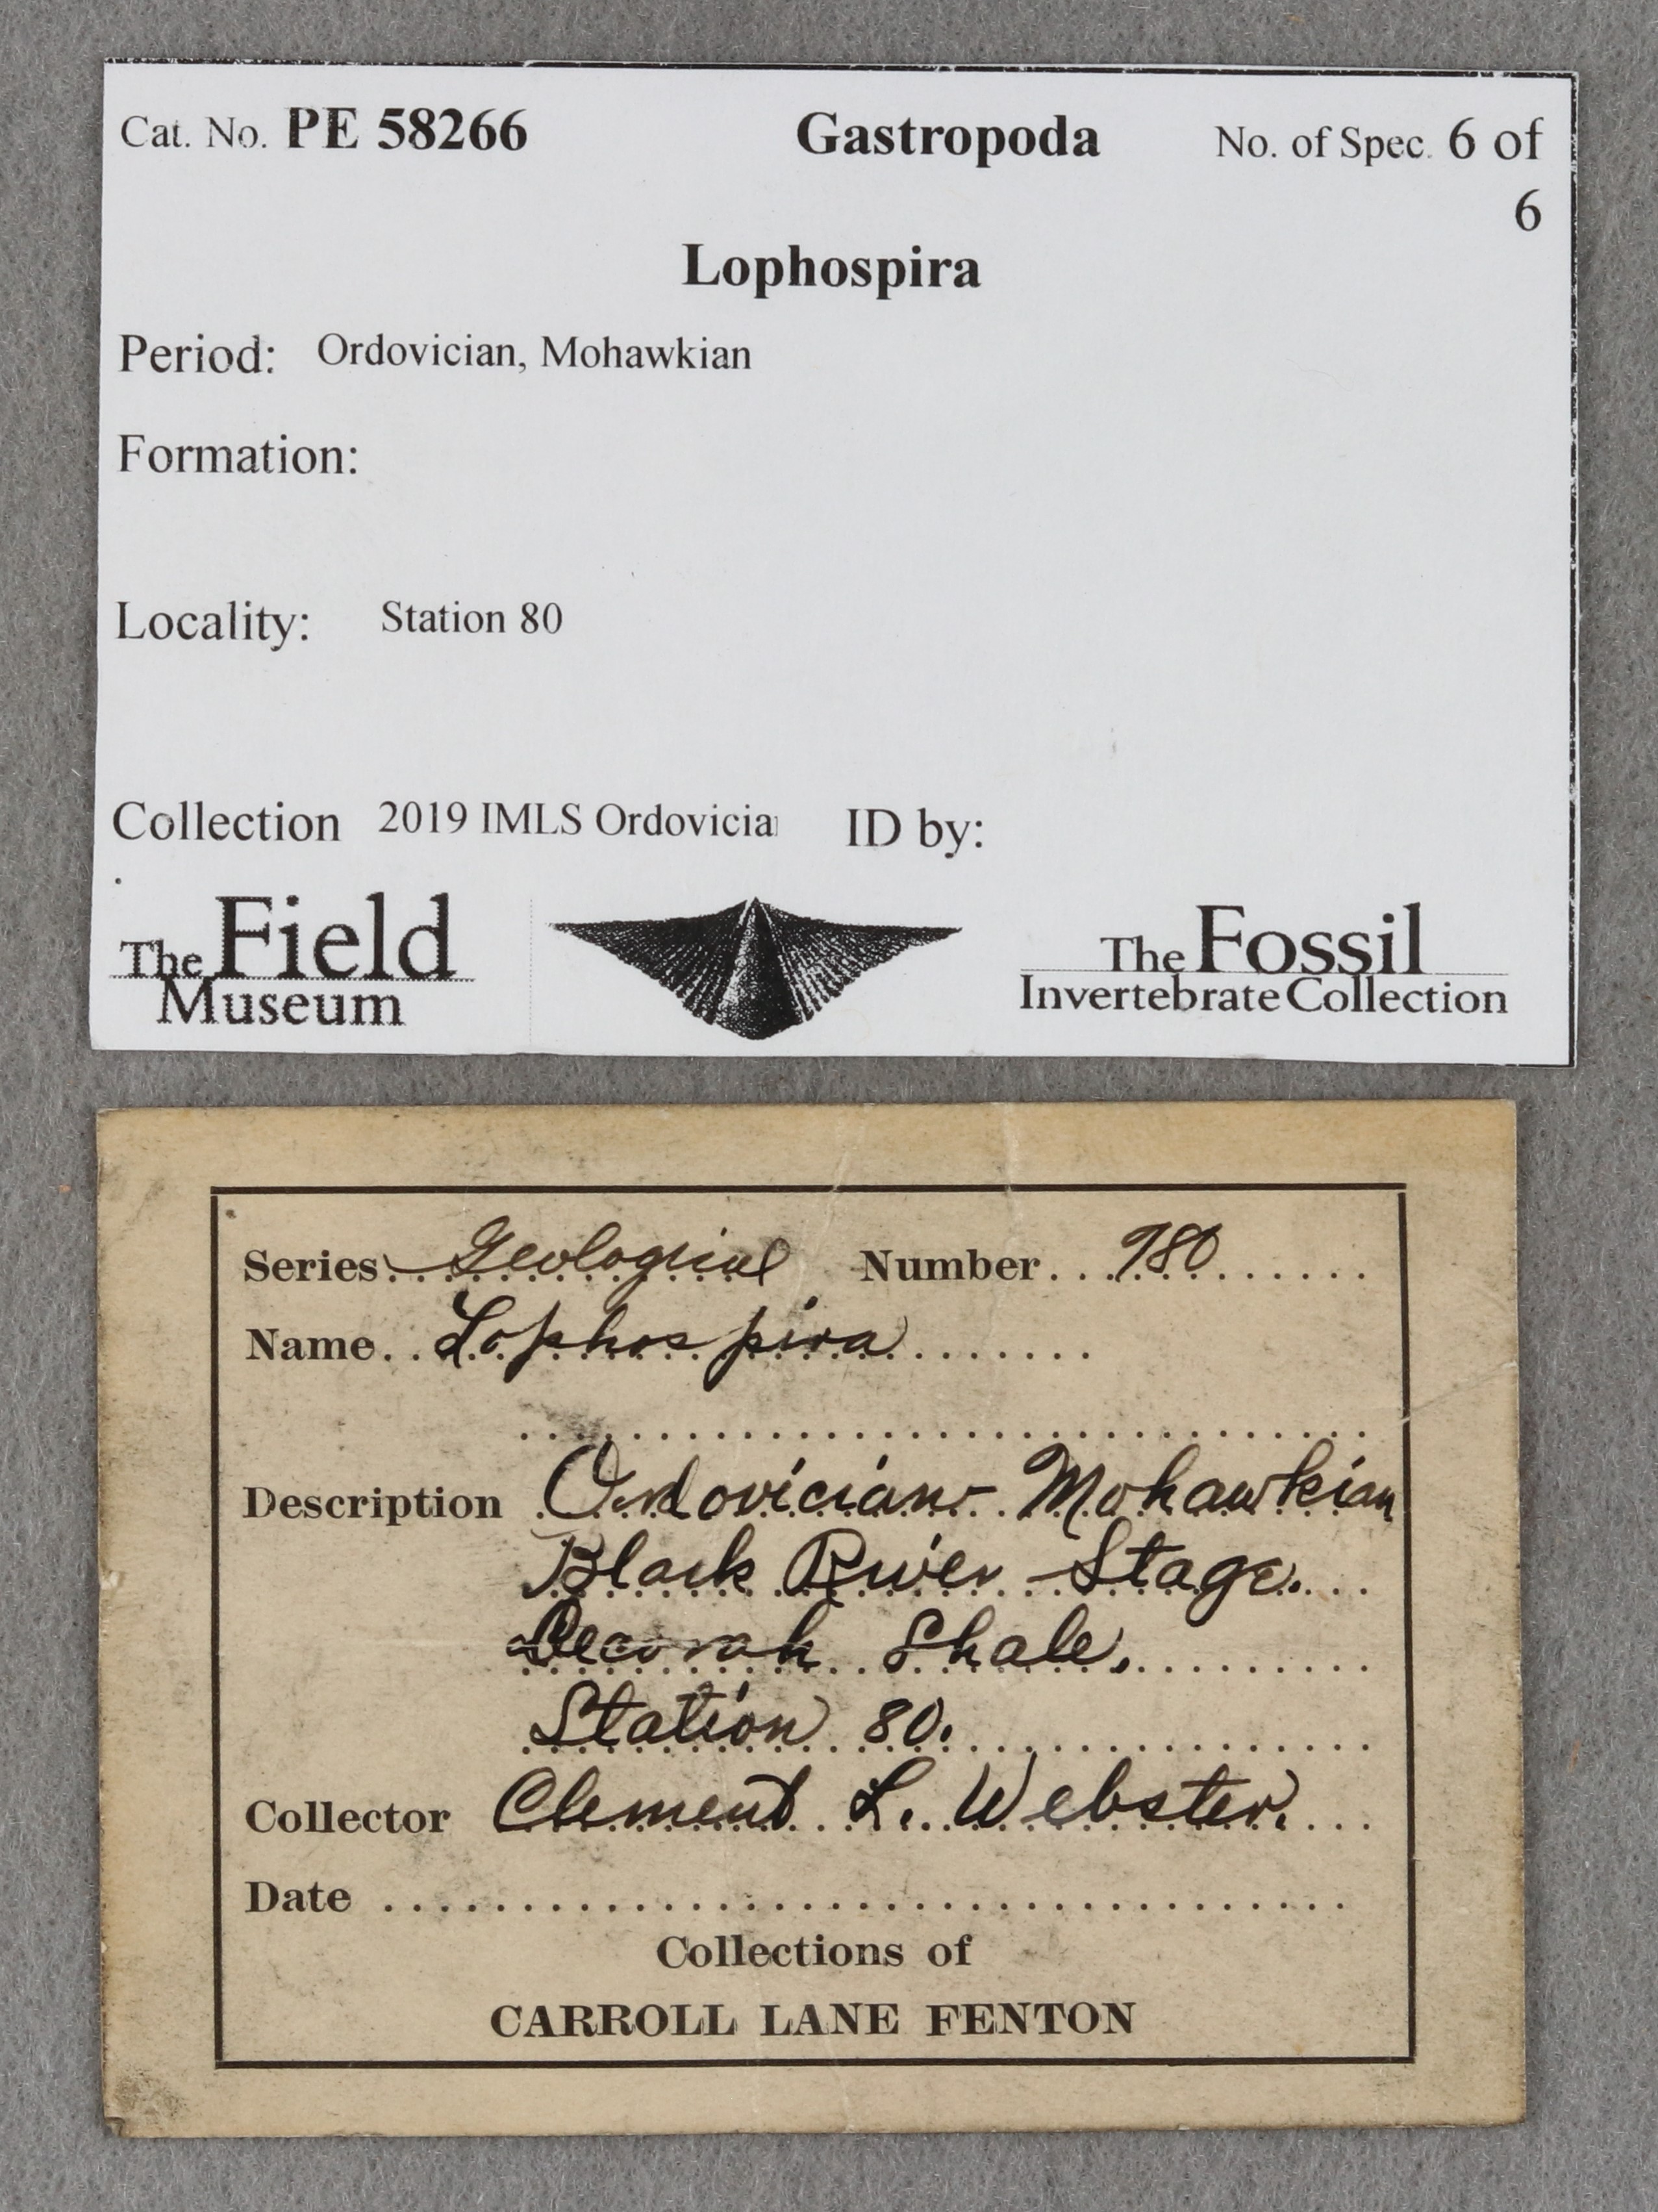 Cat. No. PE 58266 Gastropoda No. of Spec. 6 of
6
Lophospira
Period: Ordovician, Mohawkian
Formation:
Locality: Station 80
Collection 2019 IMLS Ordovicia ID by:
The Field
Museum
The Fossil
Invertebrate Collection
Series Geological Number 980
Name Lophospira
Description Ordovician - Mohawkian
Black River Stage.
Decorah Shale.
Station 80.
Collector Clement L. Webster.
Date
Collections of
CARROLL LANE FENTON